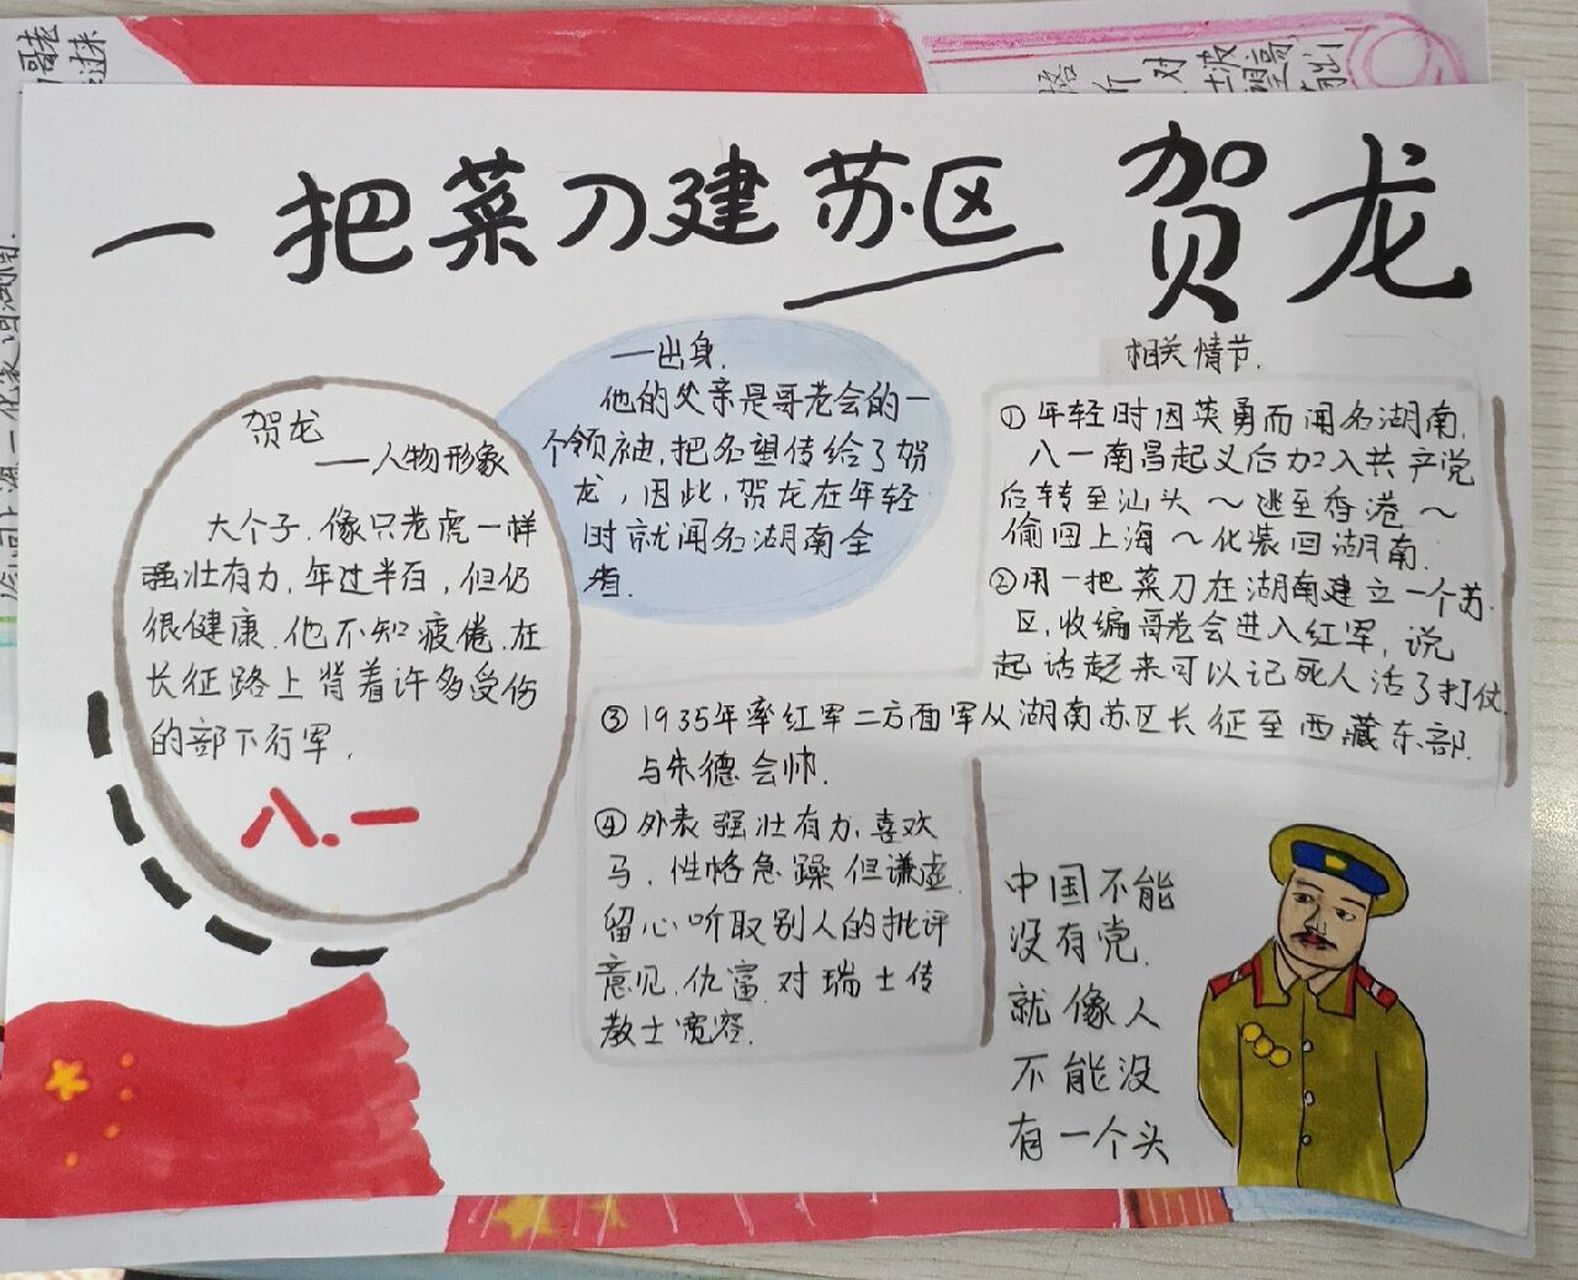 一把菜刀建苏区 贺龙
贺龙
——人物形象
大个子.像只老虎一样
强壮有力,年过半百,但仍
很健康.他不知疲倦.在
长征路上背着许多受伤
的部下行军.
八.一
—出身.
他的父亲是哥老会的一
个领袖,把名望传给了贺
龙,因此,贺龙在年轻
时就闻名湖南全
省.
相关情节.
①年轻时因英勇而闻名湖南.
八一南昌起义后加入共产党
后转至汕头～逃至香港～
偷回上海～化装回湖南.
②用一把菜刀在湖南建立一个苏
区,收编哥老会进入红军,说
起话起来可以记死人活了打仗.
③1935年率红军二方面军从湖南苏区长征至西藏东部.
与朱德会帅.
④外表强壮有力,喜欢
马.性格急躁但谦虚.
留心听取别人的批评
意见.仇富.对瑞士传
教士宽容.
中国不能
没有党.
就像人
不能没
有一个头
哥老